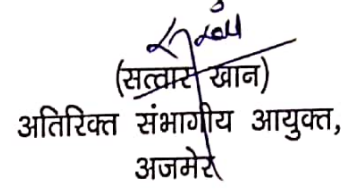 (सत्वार खान)
अतिरिक्त संभागीय आयुक्त,
अजमेर